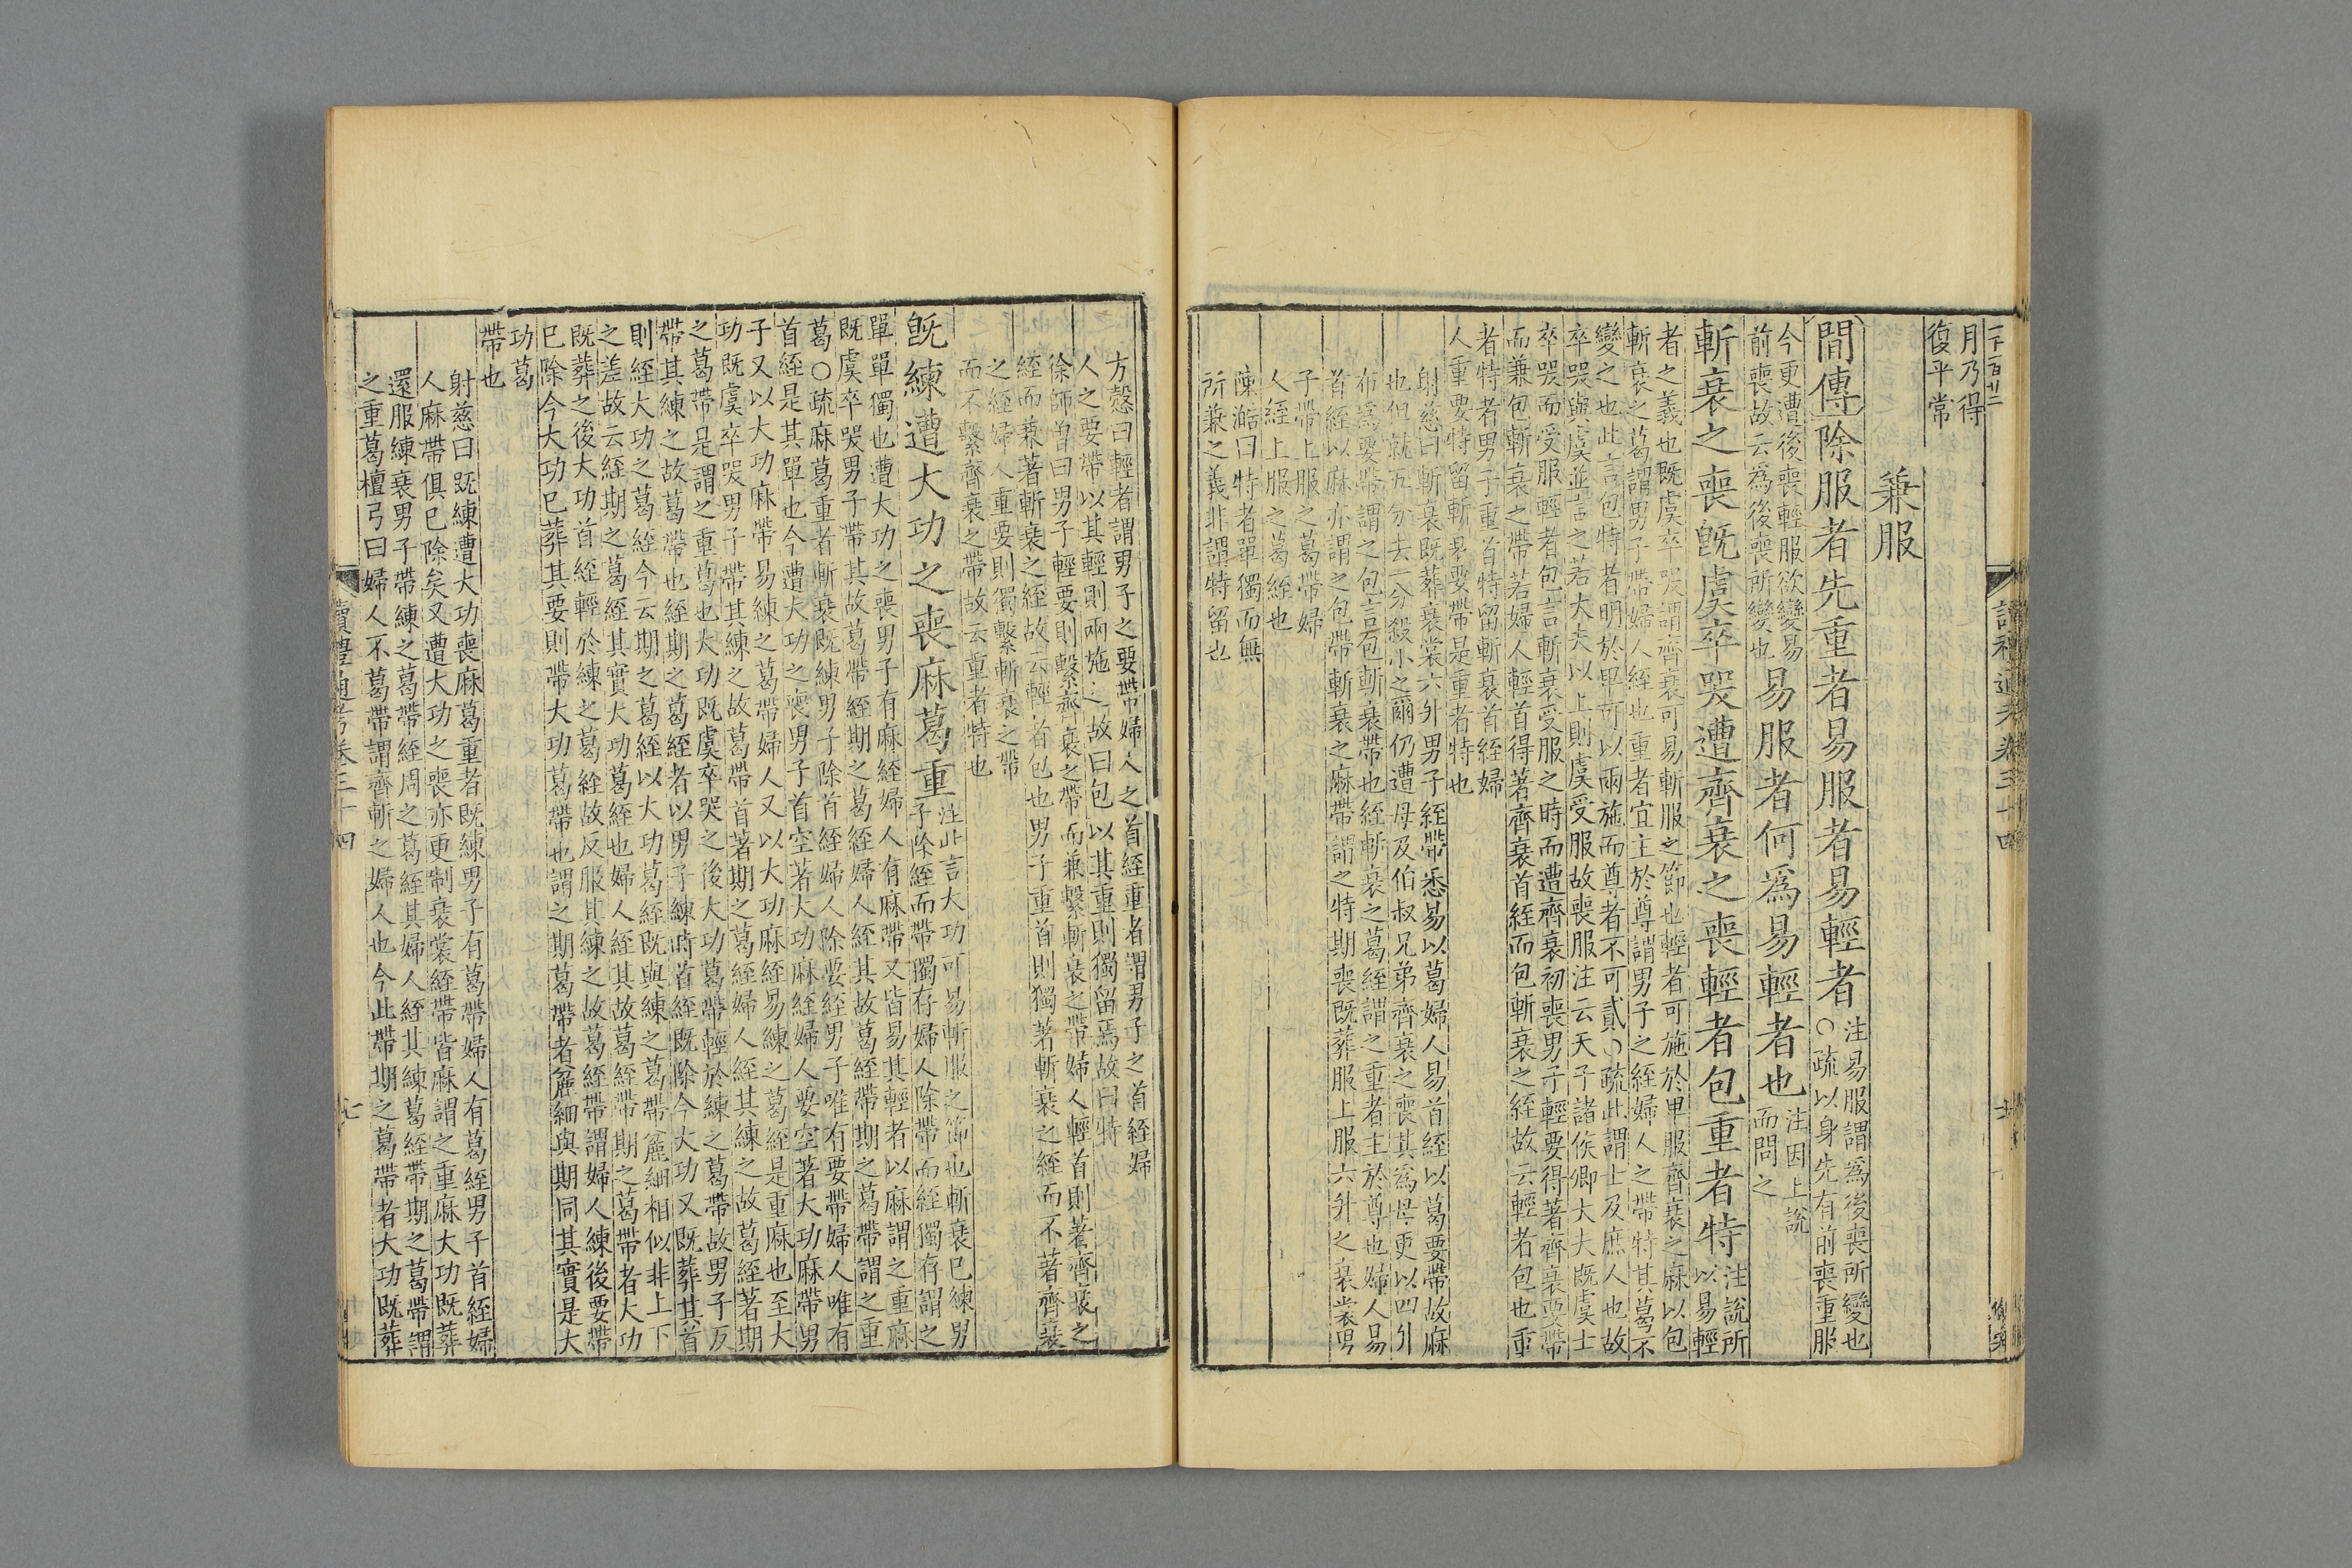 月乃得
復平常
兼服
間傳除服者先重者易服者易輕者
注易服謂為後喪所變也
○疏以身先有前喪重服
今更遭後喪輕服欲變易
前喪故云為後喪所變也
易服者何爲易輕者也
注因上說
而問之
斬衰之喪旣虞卒哭遭齊衰之喪輕者包重者特
注說所
以易輕
者之義也既虞卒哭謂齊衰可易斬服之節也輕者可施於卑服齊衰之麻以包
斬衰之葛謂男子帶婦人絰也重者宜主於尊謂男子之絰婦人之帶特其葛不
變之也此言包特者明於卑可以兩施而尊者不可貳○疏此謂士及庶人也故
卒哭與虞並言之若大夫以上則虞受服故喪服注云天子諸侯卿大夫既虞士
卒哭而受服輕者包言斬衰受服之時而遭齊衰初喪男子輕要得著齊衰要帶
而兼包斬衰之帶若婦人輕首得著齊衰首絰而包斬衰之絰故云輕者包也重
者特者男子重首特留斬衰首絰婦
人重要特留斬衰要帶是重者特也
射慈曰斬衰既葬衰裳六升男子絰帶悉易以葛婦人易首絰以葛要帶故麻
也但就五分去一分殺小之爾仍遭母及伯叔兄弟齊衰之喪其為母更以四升
布爲要帶謂之包言包斬衰帶也絰斬衰之葛絰謂之重者主於尊也婦人易
首絰以麻亦謂之包帶斬衰之麻帶謂之特期喪既葬服上服六升之衰裳男
子帶上服之葛帶婦
人絰上服之葛絰也
陳澔曰特者單獨而無
所兼之義非謂特留也
方慤曰輕者謂男子之要帶婦人之首絰重者謂男子之首絰婦
人之要帶以其輕則兩施之故曰包以其重則獨留焉故曰特
徐師曾曰男子輕要則繫齊衰之帶而兼繫斬衰之帶婦人輕首則著齊衰之
絰而兼著斬衰之絰故云輕者包也男子重首則獨著斬衰之絰而不著齊衰
之絰婦人重要則獨繫斬衰之帶
而不繫齊衰之帶故云重者特也
旣練遭大功之喪麻葛重
注此言大功可易斬服之節也斬衰已練男
子除絰而帶獨存婦人除帶而絰獨存謂之
單單獨也遭大功之喪男子有麻絰婦人有麻帶又皆易其輕者以麻謂之重麻
既虞卒哭男子帶其故葛帶絰期之葛絰婦人絰其故葛絰帶期之葛帶謂之重
葛○疏麻葛重者斬衰既練男子除首絰婦人除要絰男子唯有要帶婦人唯有
首絰是其單也今遭大功之喪男子首空著大功麻絰婦人要空著大功麻帶男
子又以大功麻帶易練之葛帶婦人又以大功麻絰易練之葛絰是重麻也至大
功既虞卒哭男子帶其練之故葛帶首著期之葛絰婦人絰其練之故葛絰著期
之葛帶是謂之重葛也大功既虞卒哭之後大功葛帶輕於練之葛帶故男子反
帶其練之故葛帶也絰期之葛絰者以男子練時首絰既除今大功又既葬其首
則絰大功之葛絰今云期之葛絰以大功葛絰既與練之葛帶麄細相似非上下
之差故云絰期之葛絰其實大功葛絰也婦人絰其故葛絰帶期之葛帶者大功
既葬之後大功首絰輕於練之葛絰故反服其練之故葛絰帶謂婦人練後要帶
已除今大功已葬其要則帶大功葛帶也謂之期葛帶者麄細與期同其實是大
功葛
帶也
射慈曰既練遭大功喪麻葛重者既練男子有葛帶婦人有葛絰男子首絰婦
人麻帶俱已除矣又遭大功之喪亦更制衰裳絰帶皆麻謂之重麻大功既葬
還服練衰男子帶練之葛帶絰周之葛絰其婦人絰其練葛絰帶期之葛帶謂
之重葛檀弓曰婦人不葛帶謂齊斬之婦人也今此帶期之葛帶者大功既葬
讀禮通考卷三十四
七